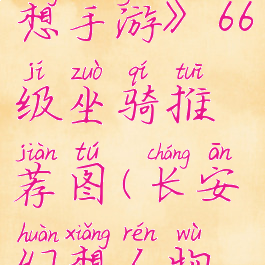 想手游》66
jí zuò qí tuī
级坐骑推
jiàn tú cháng ān
荐图(长安
huàn xiǎng rén wù
幻想人物